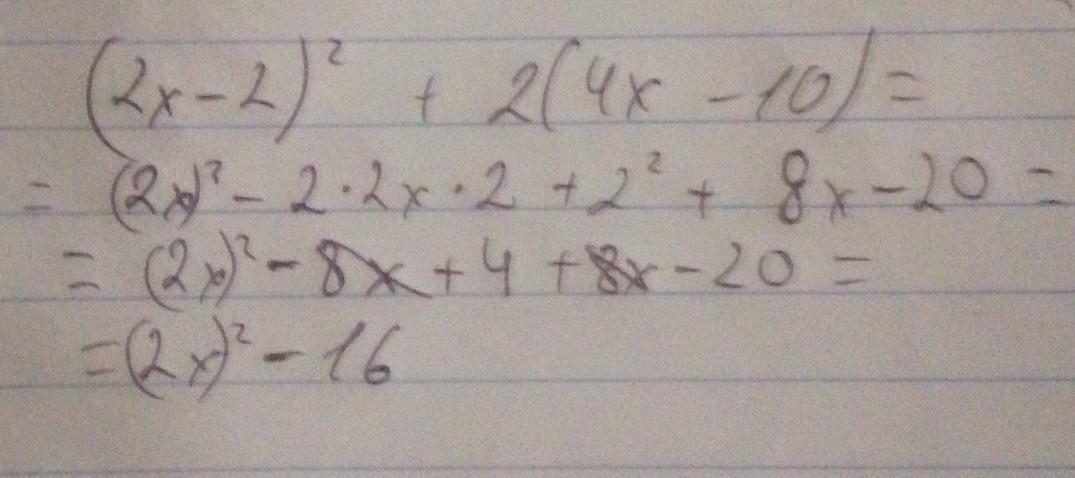 (2x-2)² + 2(4x -10)=
= (2x)² - 2·2x·2 +2² + 8x-20 =
= (2x)² - 8x+4 +8x-20 =
=(2x)² - 16